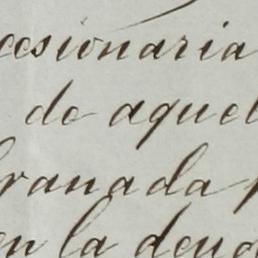 cesionaria
de aquel
Granada
en la deud